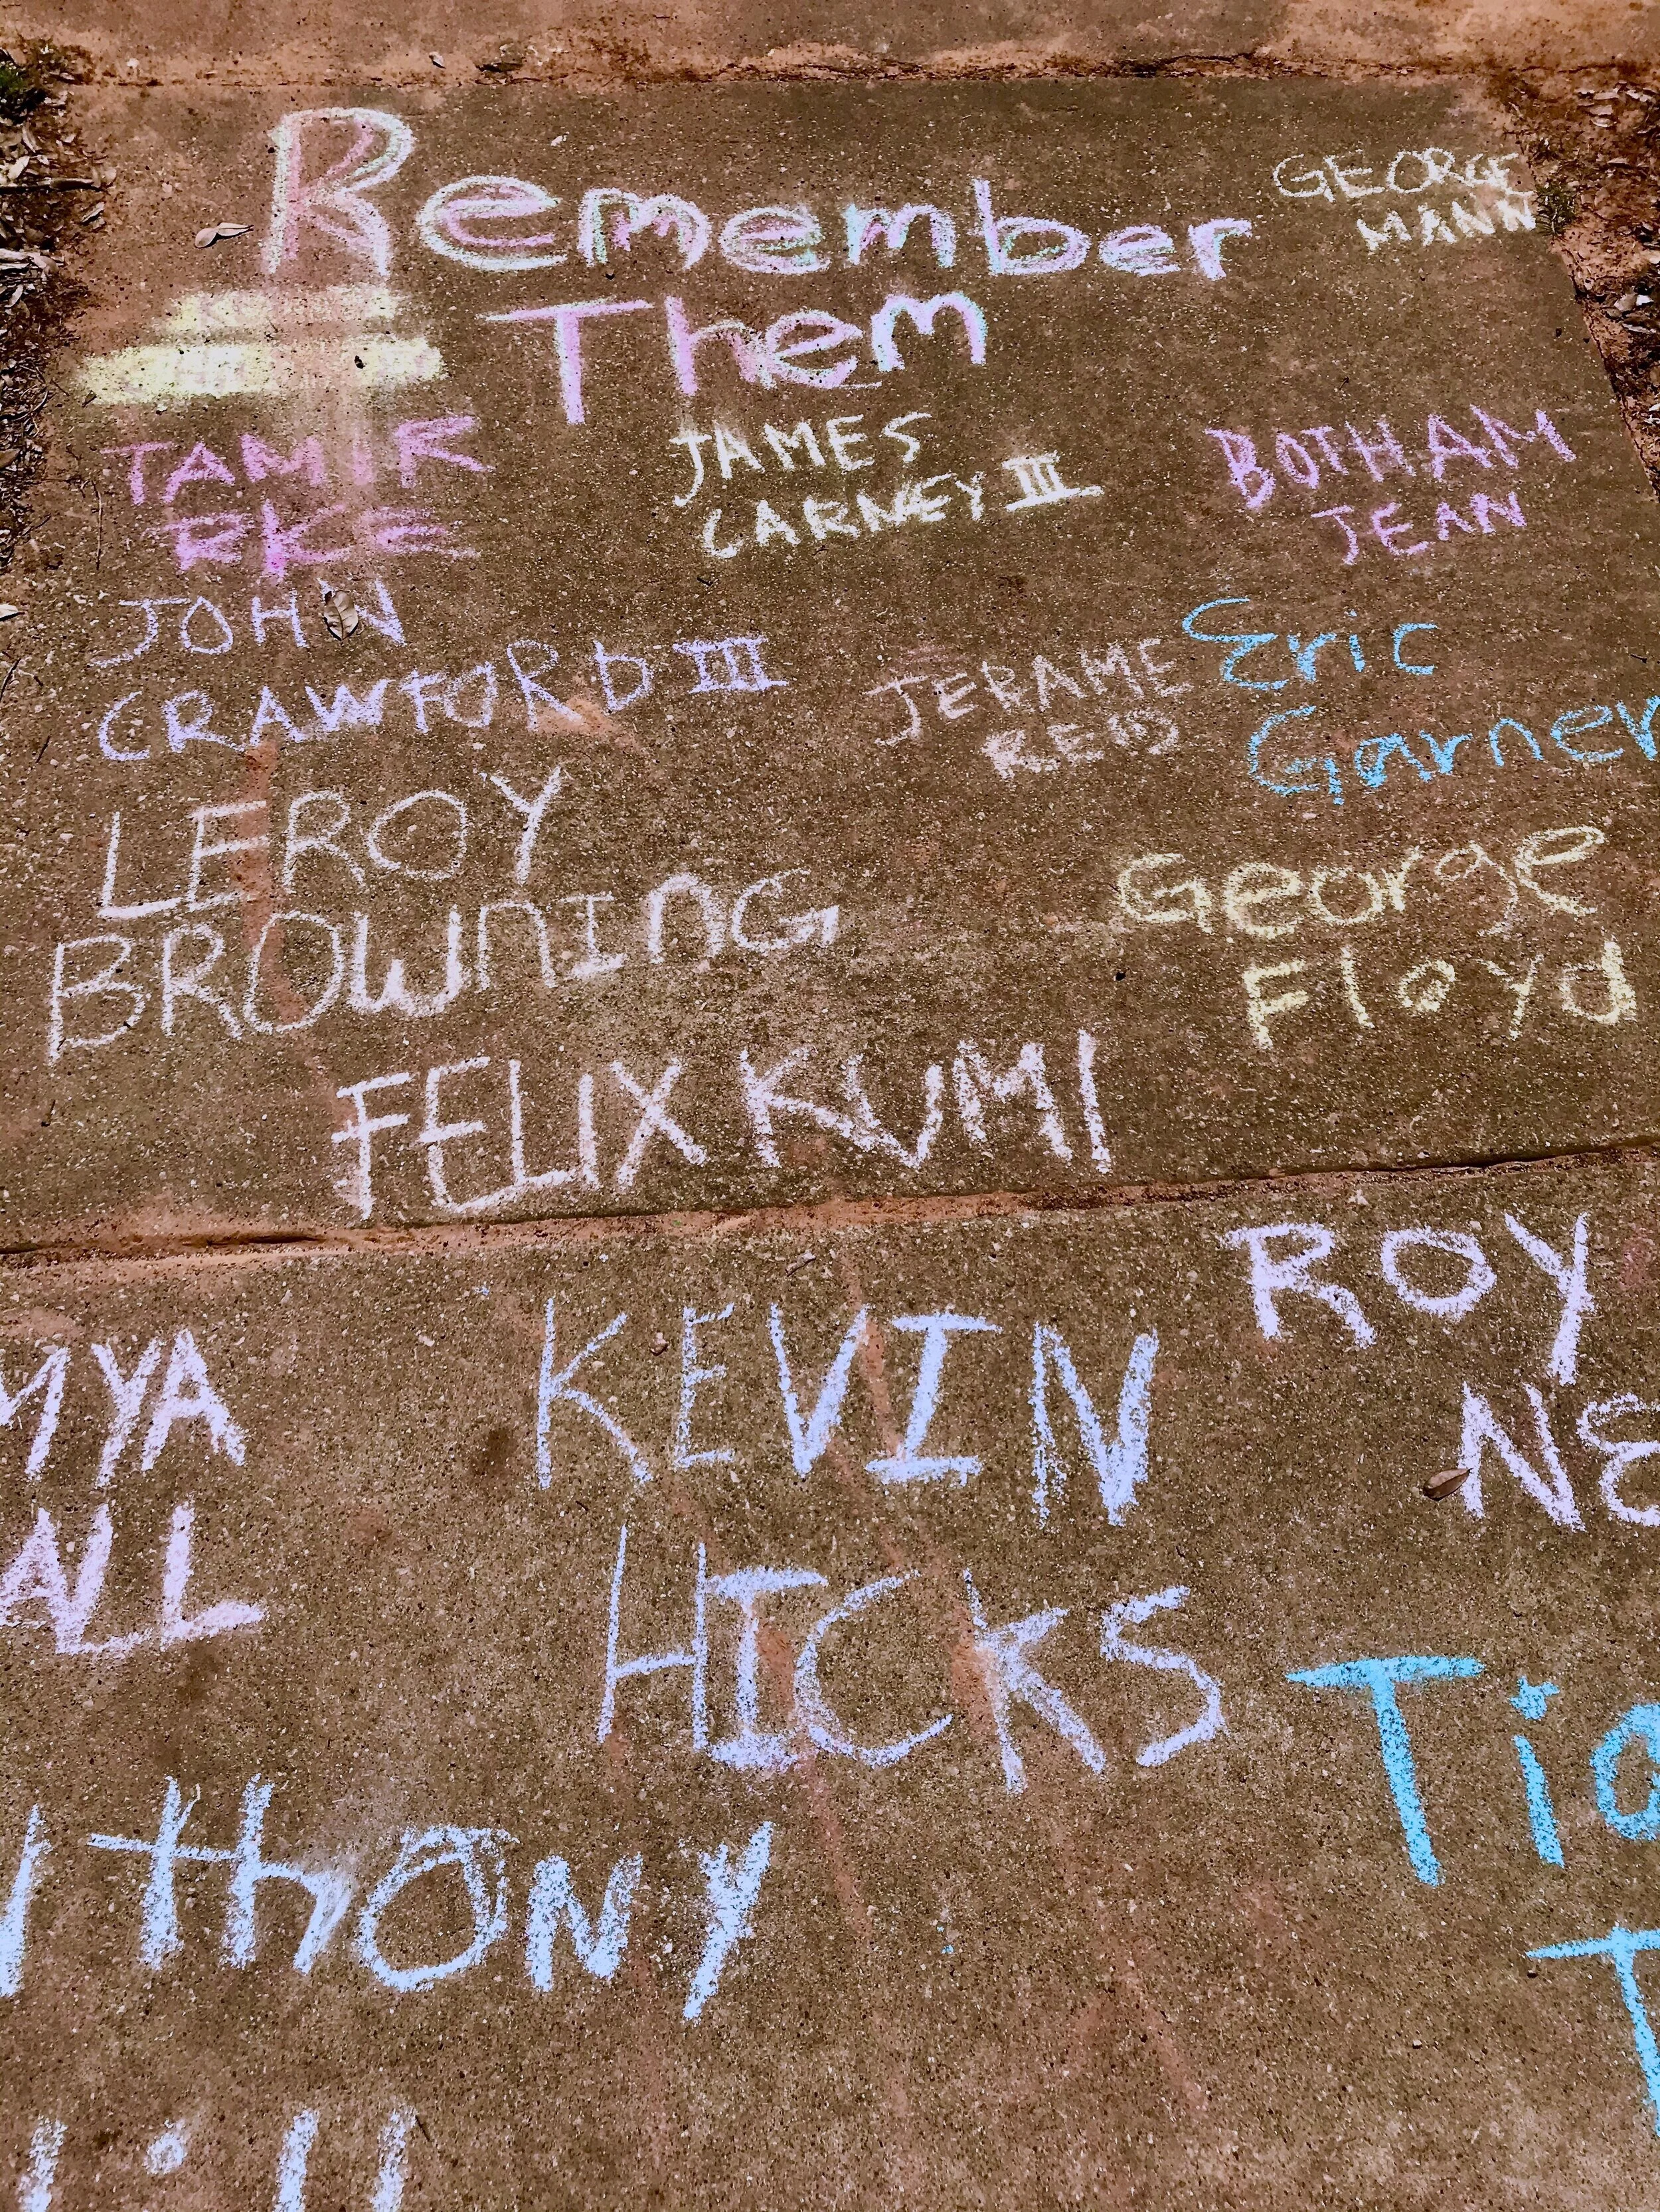 Remember
Them
GEORGE
MANN
TAMIR
RICE
JAMES
CARNEY III
BOTHAM
JEAN
JOHN
CRAWFORD III
JERAME
REID
Eric
Garner
LEROY
BROWNING
George
Floyd
FELIX KUMI
ROY
NE
MYA
ALL
KEVIN
HICKS
Tia
T
thony
ill